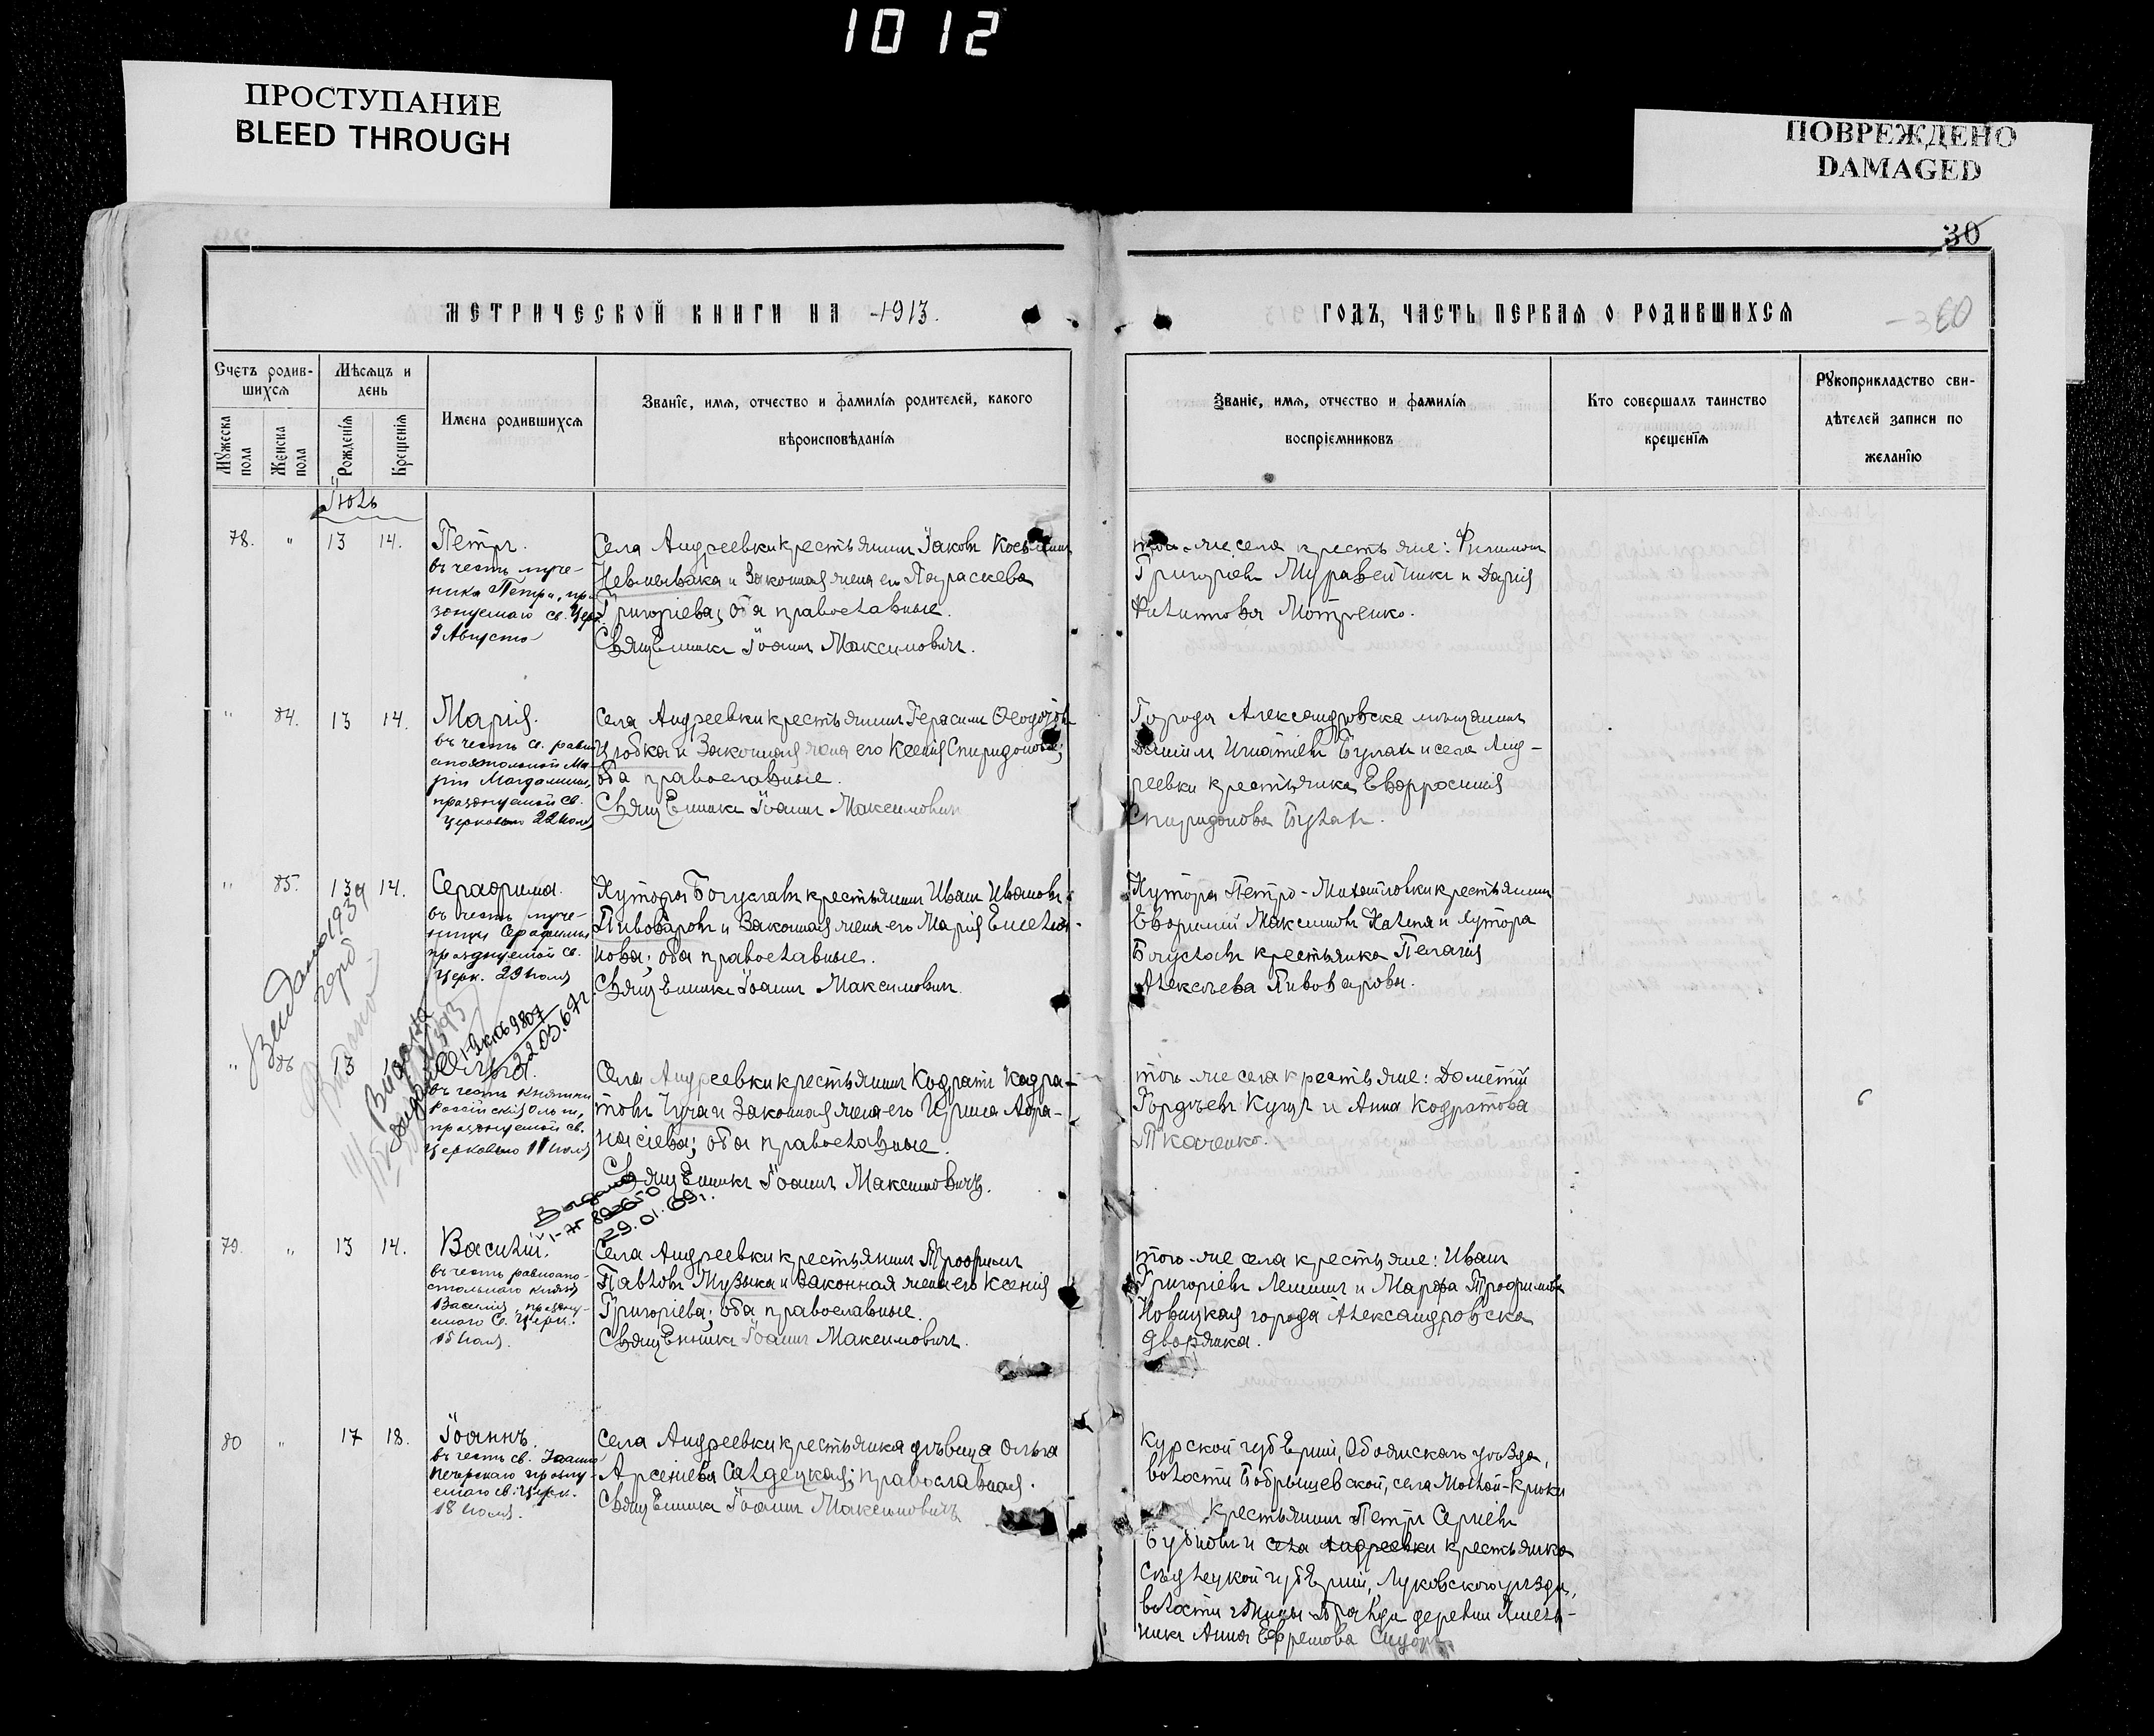 1012
ПРОСТУПАНИЕ
BLEED THROUGH
ПОВРЕЖДЕНО
DAMAGED
30
МЕТРИЧЕСКОЙ КНИГИ НА 1913.
ГОДЪ, ЧАСТЬ ПЕРВАЯ О РОДИВШИХСЯ
30
Счетъ родив-
шихся
Мужеска
пола
Женска
пола
Мѣсяцъ и
день
Рожденія
Крещенія
Имена родившихся
Званіе, имя, отчество и фамилія родителей, какого
вѣроисповѣданія
Званіе, имя, отчество и фамилія
воспріемниковъ
Кто совершалъ таинство
крещенія
Рукоприкладство сви-
дѣтелей записи по
желанію
Іюль
78. " 13 14.
Петръ.
въ честь муче-
ника Петра, пра-
зднуемаго св. Церк.
9 Августа
Села Андреевки крестьянинъ Іаковъ Косьминъ
и законная жена его Параскева
Григоріева; оба православные.
Священникъ Іоаннъ Максимовичъ.
того-же села крестьяне: Филимонъ
Григоріевъ Муравейникъ и Дарія
Филимонова Мотренко.
" 84. 13 14.
Марія.
въ честь св. равно-
апостольной Ма-
ріи Магдалины,
празднуемой св.
Церковью 22 Іюля
Села Андреевки крестьянинъ Герасимъ Ѳеодотовъ
и законная жена его Ксенія Спиридонова;
оба православные.
Священникъ Іоаннъ Максимовичъ
Города Александровска мѣщанинъ
Даніилъ Игнатіевъ Булахъ и села Анд-
реевки крестьянка Евфросинія
Спиридонова Булахъ.
" 85. 13 14.
Серафима.
въ честь муче-
ницы Серафимы
празднуемой св.
Церк. 29 Іюля
Хутора Богуславъ крестьянинъ Иванъ Ивановъ
Пивоваровъ и законная жена его Марія Емельян-
нова; оба православные.
Священникъ Іоаннъ Максимовичъ.
Хутора Петро-Михайловки крестьянинъ
Евфимій Максимовъ Каленя и хутора
Богуславъ крестьянка Пелагія
Алексѣева Пивоварова.
Видано 1939
Выдана
9807
22.03.67г.
" 86 13
Ольга.
въ честь княгини
Россійскія Ольги,
празднуемой св.
Церковью 11 Іюля
Села Андреевки крестьянинъ Кодратъ Кодра-
товъ и законная жена его Ирина Аѳа-
насіева; оба православные.
Священникъ Іоаннъ Максимовичъ.
того-же села крестьяне: Дометій
Гордѣевъ Кущъ и Анна Кодратова
Ткаченко.
Выдано
29.01.69г.
79. " 13 14.
Василій.
въ честь равноапо-
стольнаго князя
Василія, праздну-
емаго св. Церк.
15 Іюля.
Села Андреевки крестьянинъ Трофимъ
Павловъ Музыка и законная жена его Ксенія
Григоріева; оба православные.
Священникъ Іоаннъ Максимовичъ.
того-же села крестьяне: Иванъ
Григоріевъ и Марфа Трофимова
Новицкая города Александровска
дворянка.
80 " 17 18.
Іоаннъ.
въ честь св. Іоанна
Печерскаго праздну-
емаго св. Церк.
18 Іюля.
Села Андреевки крестьянка дѣвица Ольга
Арсеніева Салдецкая; православная.
Священникъ Іоаннъ Максимовичъ
Курской губерніи, Обоянскаго уѣзда,
волости Бобрышевской, села
крестьянинъ Петръ Сергіевъ
Бубновъ и села Андреевки крестьянка
Сѣдлецкой губерніи, Луковскаго уѣзда,
волости гмины деревни
Анна Ефремова